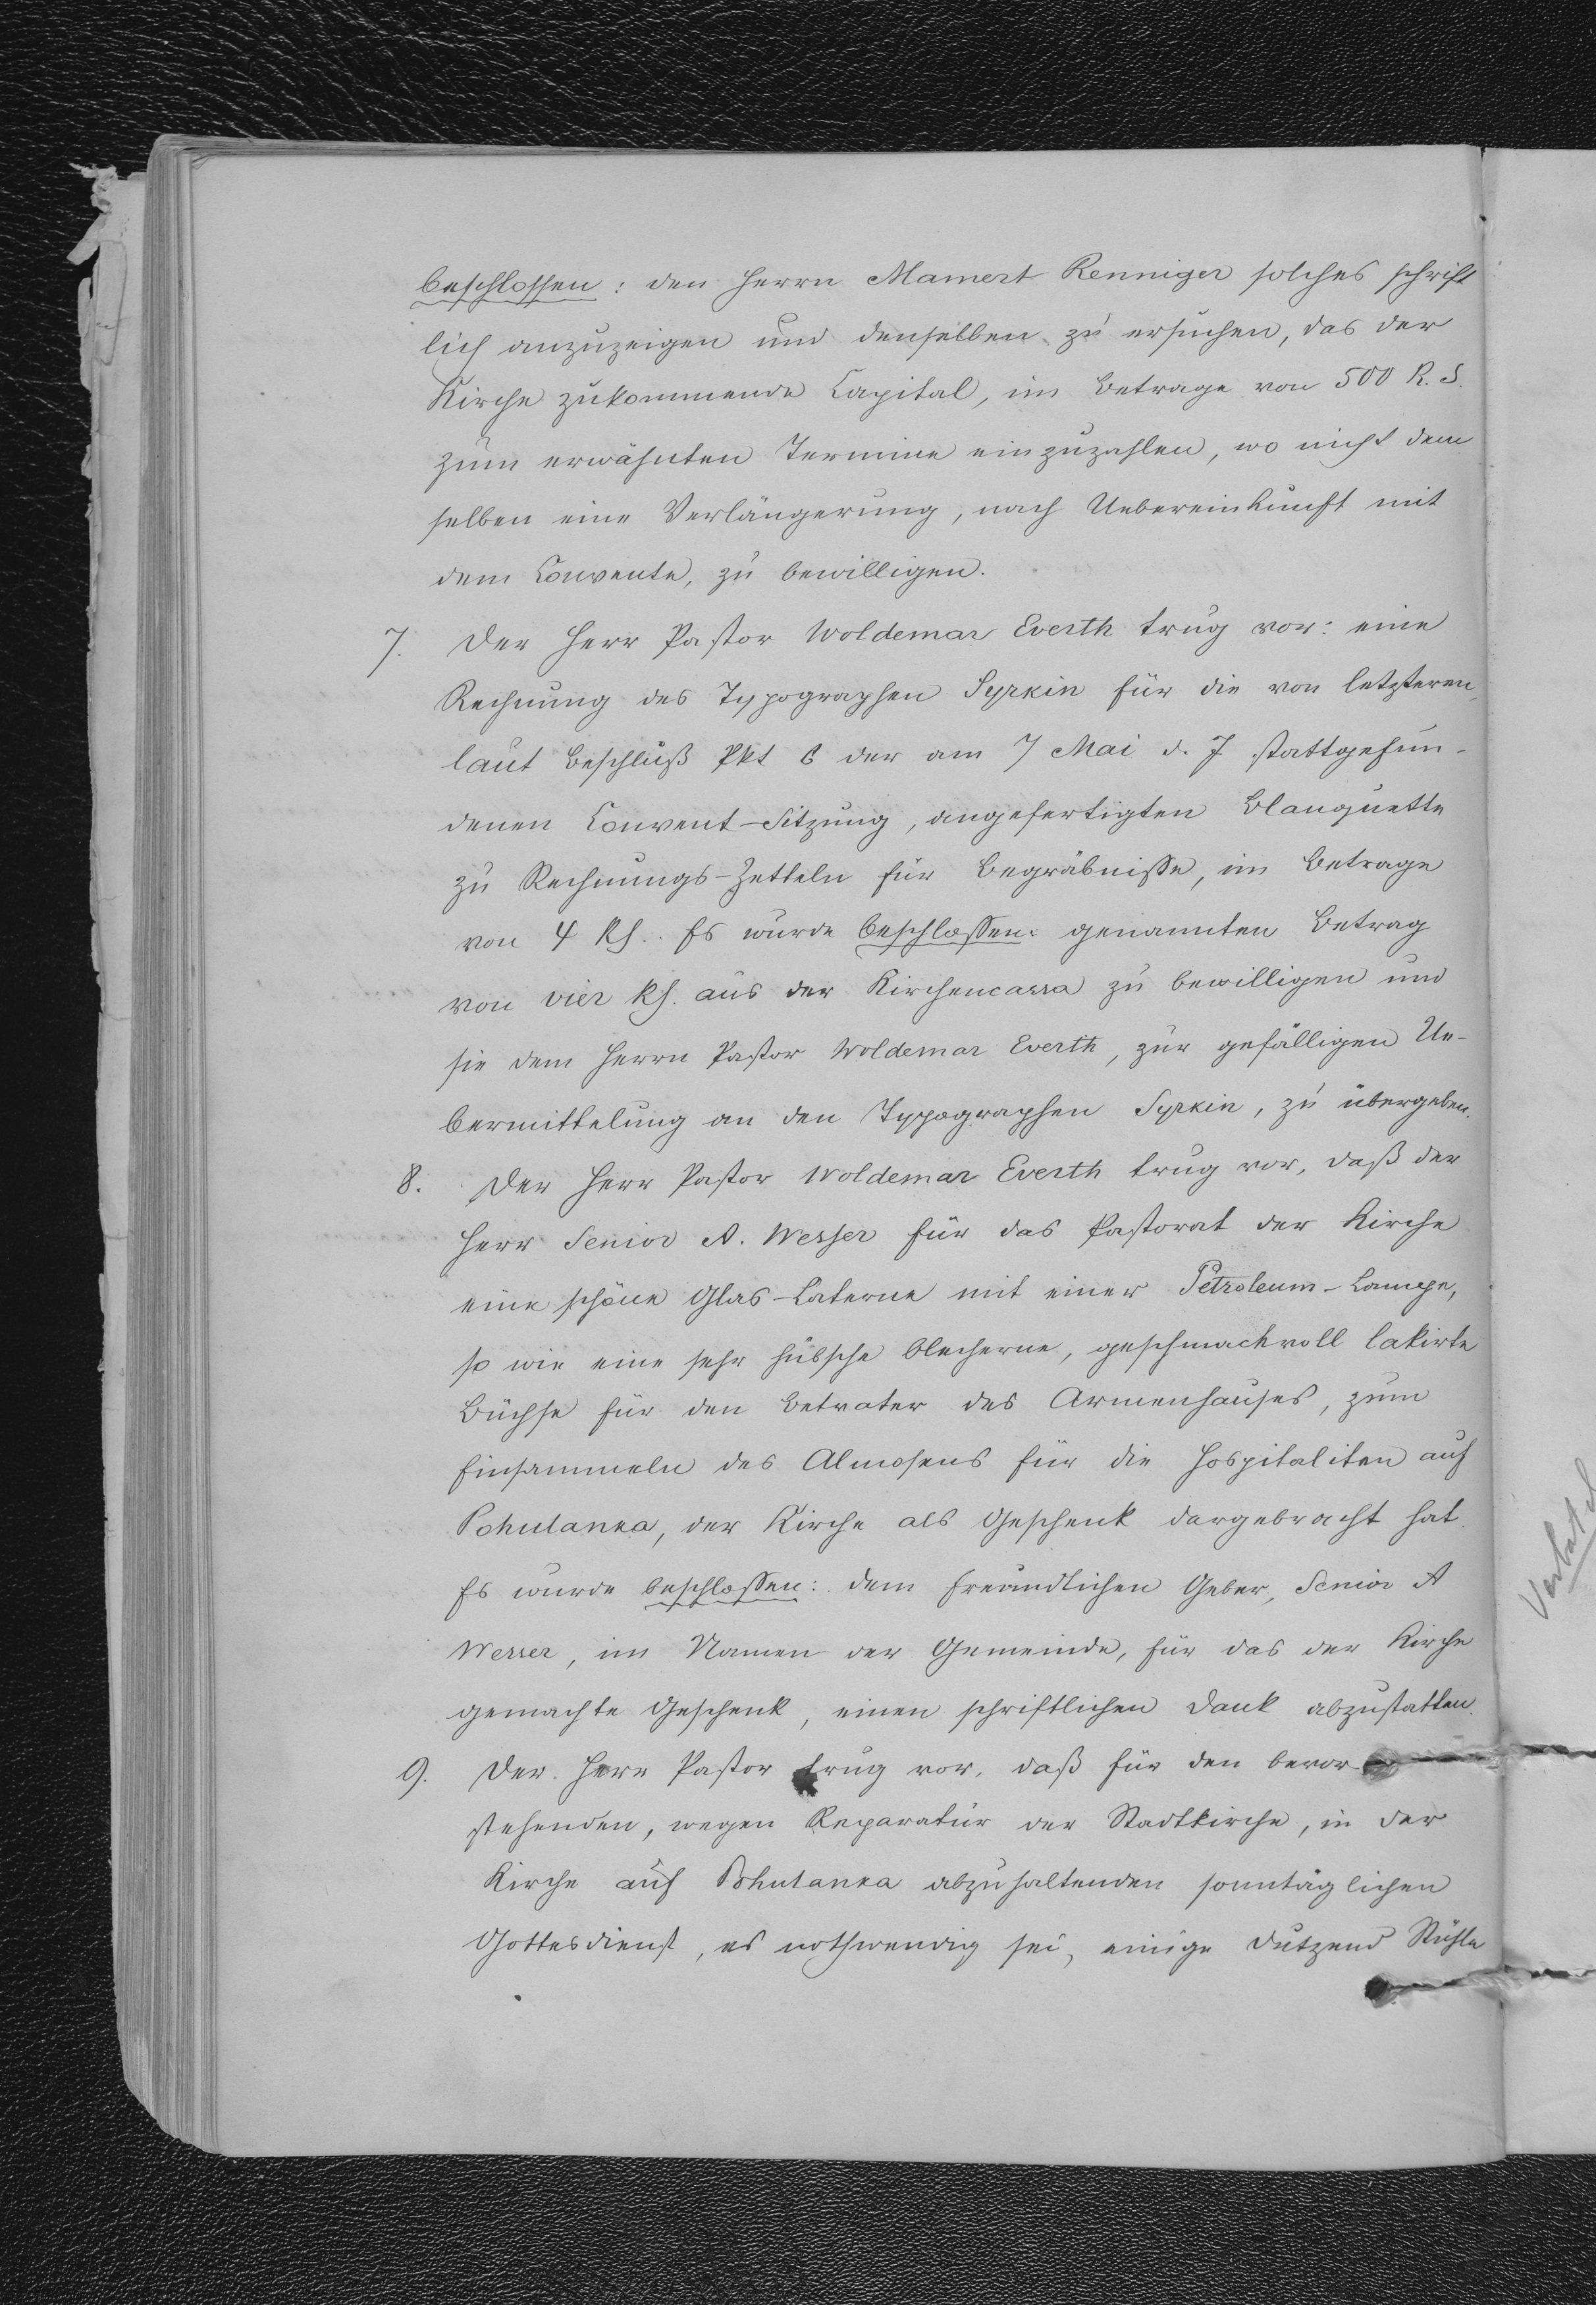 beschlossen: den Herrn Mamert Renniger solches schrift
lich anzuzeigen und denselben zu ersuchen, das der
Kirche zukommende Capital, im Betrage von 500 R. S.
zum erwähnten Termine einzuzahlen, wo nicht dem
selben eine Verlängerung, nach Uebereinkunft mit
dem Convente, zu bewilligen.
7. Der Herr Pastor Woldemar Everth trug vor: eine
Rechnung des Typographen Syrkin für die von letzteren,
laut Beschluß Pkt 6 der am 7 Mai d. J stattgefun-
denen Convent-Sitzung, angefertigten Blanquette
zu Rechnungs-Zetteln für Begräbnisse, im Betrage
von 4 Rs. Es wurde beschlossen: genannten Betrag
von vier Rs. aus der Kirchencassa zu bewilligen und
sie dem Herrn Pastor Woldemar Everth, zur gefälligen Ue-
bermittelung an den Typographen Syrkin, zu übergeben.
8. Der Herr Pastor Woldemar Everth trug vor, daß der
Herr Senior A. Wesser für das Pastorat der Kirche
eine schöne Glas-Laterne mit einer Petroleum-Lampe,
so wie eine sehr hübsche blecherne, geschmackvoll lakirte
Büchse für den Betvater des Armenhauses, zum
Einsammeln des Almosens für die Hospitaliten auf
Pohulanka, der Kirche als Geschenk dargebracht hat.
Es wurde beschlossen: dem freundlichen Geber, Senior A
Wesser, im Namen der Gemeinde, für das der Kirche
gemachte Geschenk, einen schriftlichen Dank abzustatten.
9. Der Herr Pastor trug vor, daß für den bevor
stehenden, wegen Reparatur der Stadtkirche, in der
Kirche auf Pohulanka abzuhaltenden sonntäglichen
Gottesdienst, es nothwendig sei, einige Dutzend Stühle